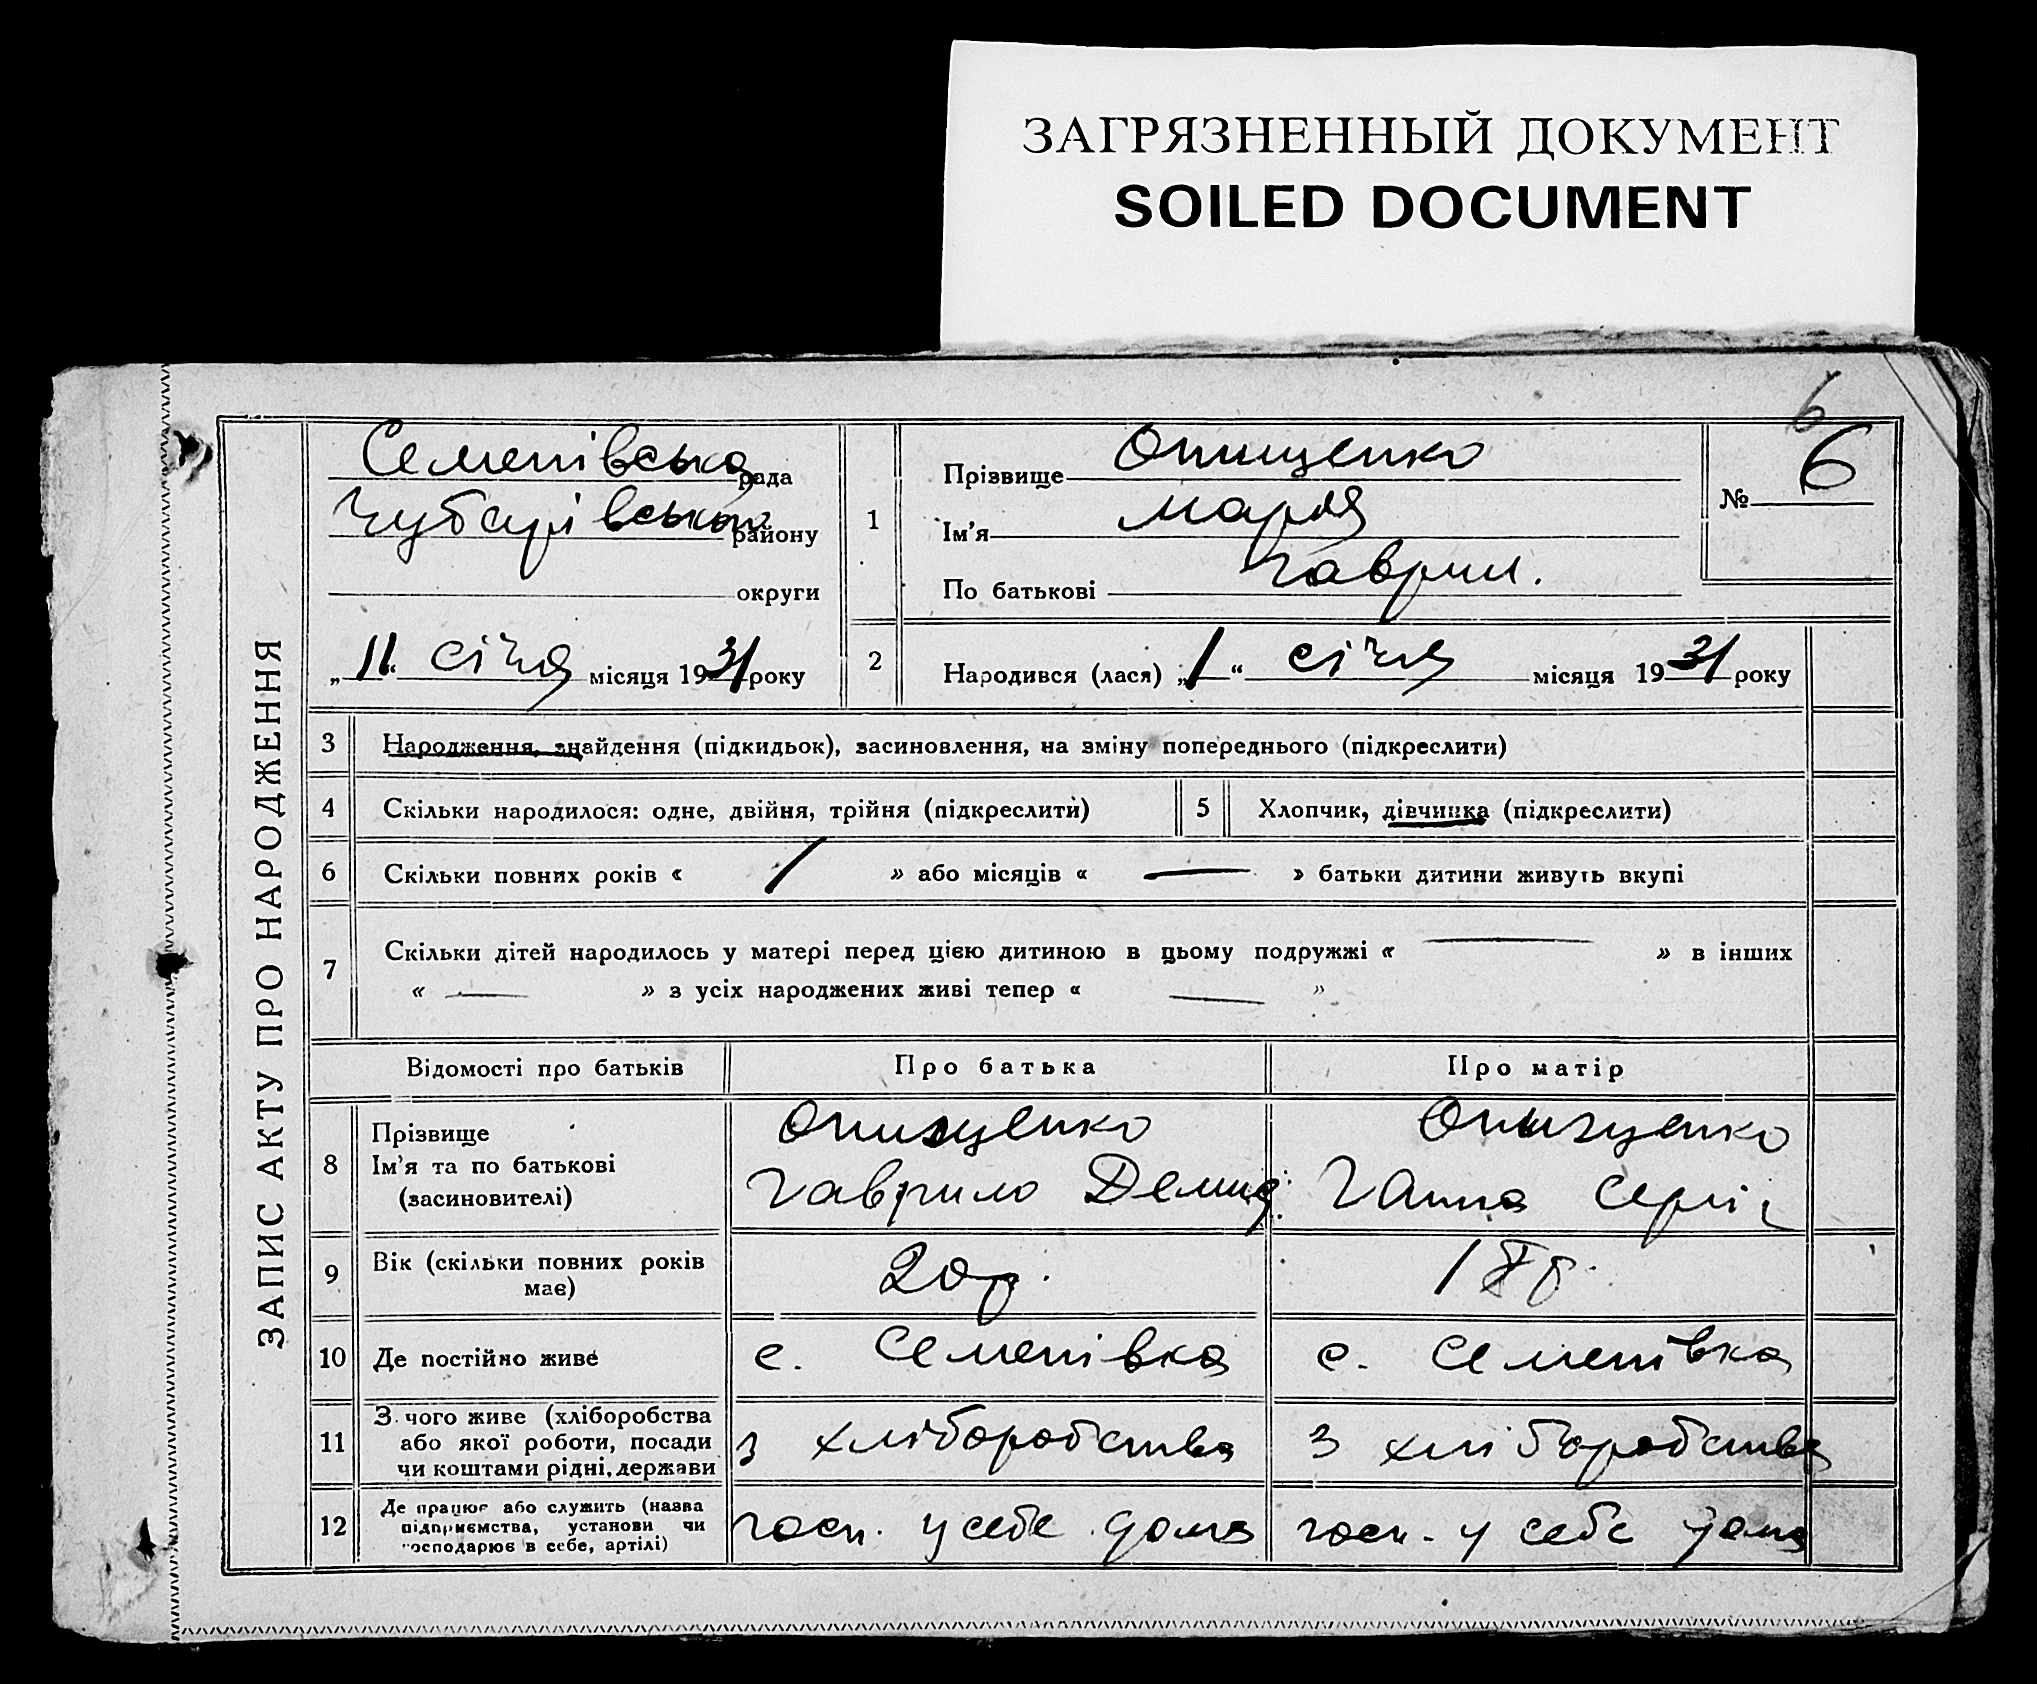 ЗАГРЯЗНЕННЫЙ ДОКУМЕНТ
SOILED DOCUMENT
6
ЗАПИС АКТУ ПРО НАРОДЖЕННЯ
Семенівська рада
Чубарівського району
округи
„11“ січня місяця 1931 року
1
Прізвище Онищенко
Ім'я Марія
По батькові Гаврил.
№ 6
2 Народився (лася) „1“ січня місяця 1931 року
3 Народження, знайдення (підкидьок), засиновлення, на зміну попереднього (підкреслити)
4 Скільки народилося: одне, двійня, трійня (підкреслити)
5 Хлопчик, дівчинка (підкреслити)
6 Скільки повних років « 1 » або місяців « — » батьки дитини живуть вкупі
7 Скільки дітей народилось у матері перед цією дитиною в цьому подружжі « — » в інших
« — » з усіх народжених живі тепер « — »
Відомості про батьків Про батька Про матір
8 Прізвище Онищенко Онищенко
Ім'я та по батькові Гаврило Демид. Ганна Сергі
(засиновителі)
9 Вік (скільки повних років має) 20 р. 18 р.
10 Де постійно живе с. Семенівка с. Семенівка
11 З чого живе (хліборобства
або якої роботи, посади з хліборобства з хліборобства
чи коштами рідні, держави
12 Де працює або служить (назва
підприємства, установи чи госп. у себе дома госп. у себе дома
господарює в себе, артілі)